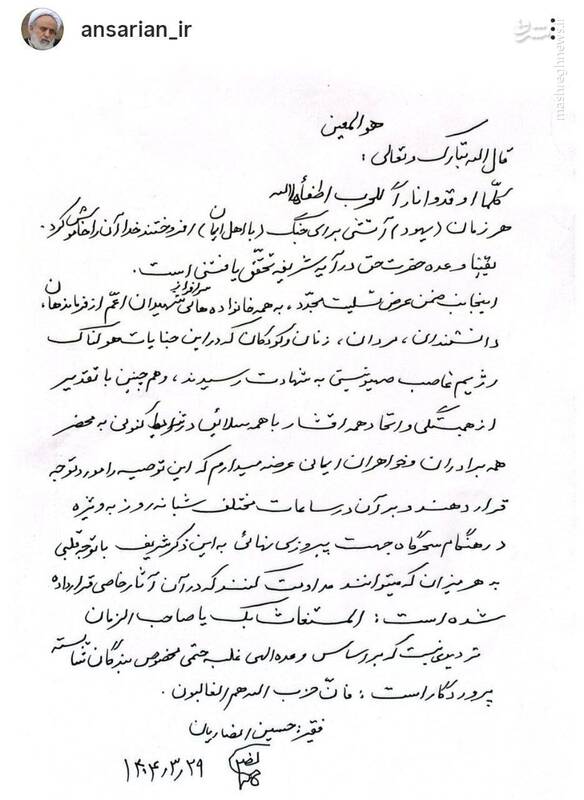 ansarian_ir
مشرق
mashreghnews.ir
هو المعین
قال الله تبارک و تعالی :
کلّما اوقدوا ناراً للحرب اطفأها الله
هر زمان (یهود) آتشی برای جنگ (با اهل ایمان) افروختند خدا آن را خاموش کرد .
یقیناً وعده حضرت حق در آیه شریفه تحقّق یافتنی است .
اینجانب ضمن عرض تسلیت مجدّد ، به همه خانواده های سرافراز شهیدان اعمّ از فرماندهان ،
دانشمندان ، مردان ، زنان و کودکان که در این جنایات هولناک
رژیم غاصب صهیونیستی به شهادت رسیدند ، و همچنین با تقدیر
از همبستگی و اتحاد همه اقشار با همه سلائق در شرایط کنونی به محضر
همه برادران و خواهران ایمانی عرضه میدارم که این توصیه را مورد توجه
قرار دهند و بر آن در ساعات مختلف شبانه روز به ویژه
در هنگام سحرگاه جهت پیروزی نهائی به این ذکر شریف با توجه قلبی
به هر میزان که میتوانند مداومت کنند که در آن آثار خاصی قرار داده
شده است : المستغاث بک یا صاحب الزمان
تردیدی نیست که بر اساس وعده الهی غلبه حتمی مخصوص بندگان شایسته
پروردگار است : فانّ حزب الله هم الغالبون .
فقیر : حسین انصاریان
۱۴۰۴,۳,۲۹